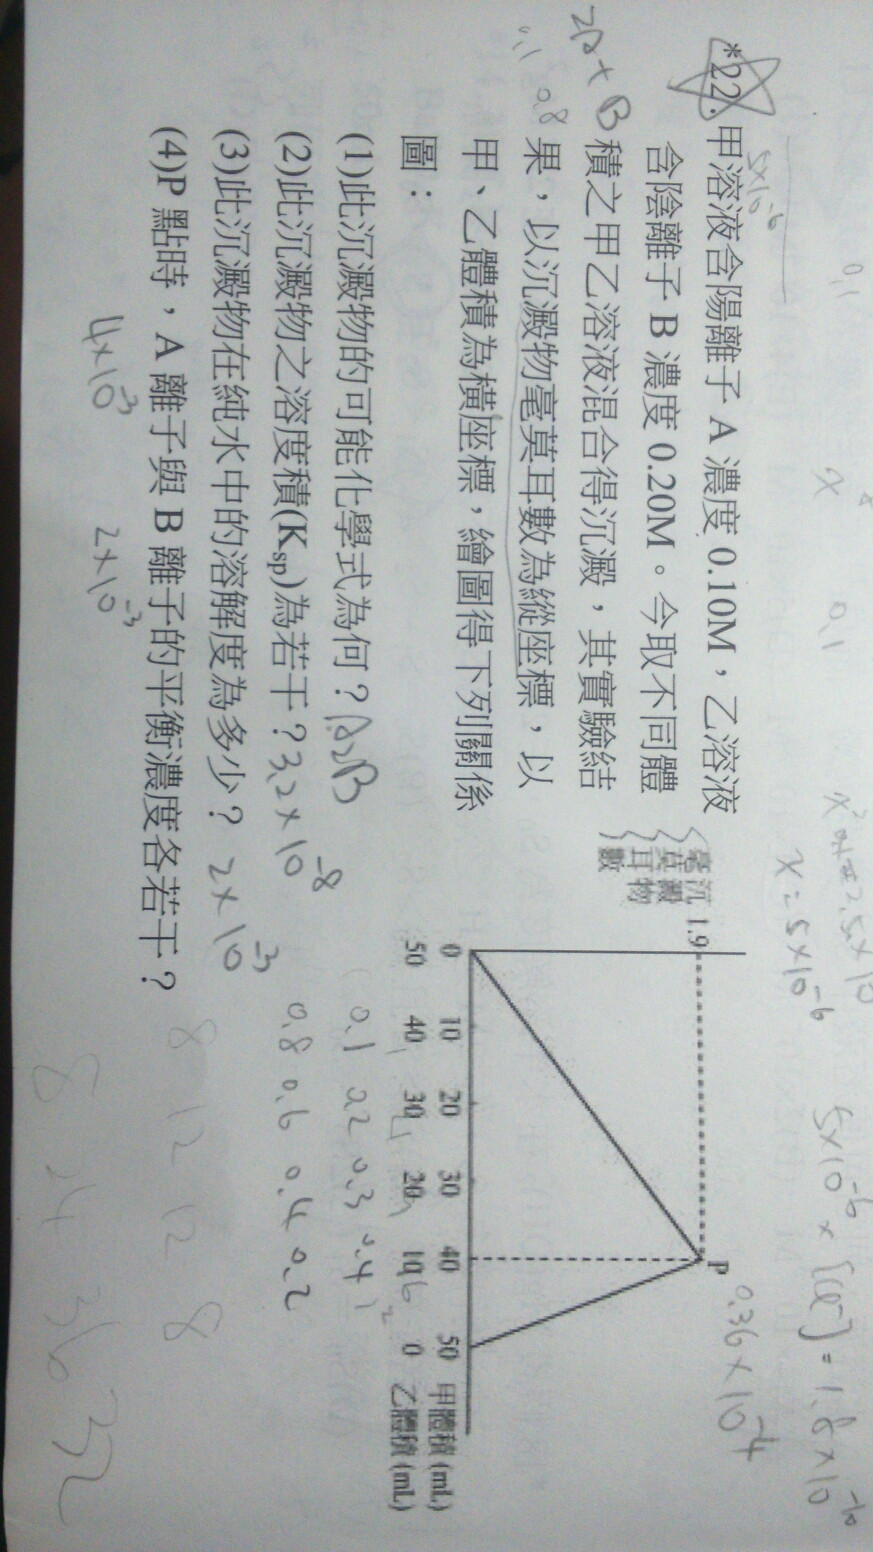 *22.甲溶液含陽離子 A 濃度 0.10M，乙溶液
含陰離子 B 濃度 0.20M。今取不同體
積之甲乙溶液混合得沉澱，其實驗結
果，以沉澱物毫莫耳數為縱座標，以
甲、乙體積為橫座標，繪圖得下列關係
圖：
(1)此沉澱物的可能化學式為何？A2B
(2)此沉澱物之溶度積(Ksp)為若干？3.2×10-8
(3)此沉澱物在純水中的溶解度為多少？2×10-3
(4)P 點時，A 離子與 B 離子的平衡濃度各若干？
4×10-3 2×10-3
沉澱物
毫莫耳數
1.9
P
0 10 20 30 40 50 甲體積(mL)
50 40 30 20 10 0 乙體積(mL)
0.1 0.2 0.3 0.4
0.8 0.6 0.4 0.2
8 12 12 8
8 24 36 32
2A+B
0.1 0.8
5×10-6
0.1
x 0.1
x=5×10-6
5×10-6×[Cl-]=1.8×10-10
0.36×10-4